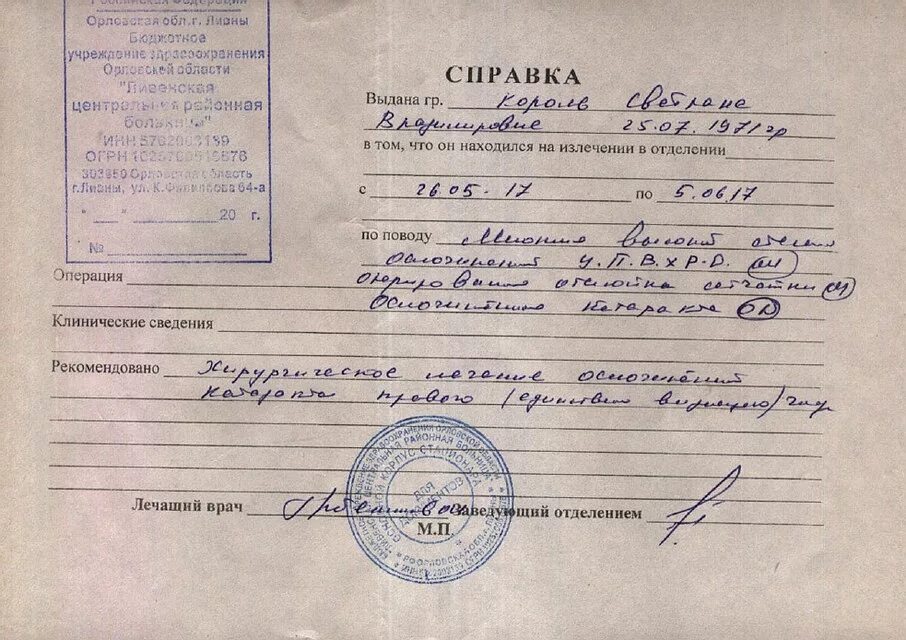 Российская Федерация
Орловская обл. г. Ливны
Бюджетное
учреждение здравоохранения
Орловской области
"Ливенская
центральная районная
больница"
ИНН 5702003139
ОГРН
303850 Орловская область
г.Ливны, ул. К.Филиппова 64-а
" " 20 г.
№
СПРАВКА
Выдана гр. Король Светлане
Владимировне 25.07.1971гр
в том, что он находился на излечении в отделении
с 26.05.17 по 5.06.17
по поводу Миопия высокой степени
осложненная
Операция оперированная отслойка сетчатки
Осложненная катаракта OD
Клинические сведения
Рекомендовано Хирургическое лечение осложненной
катаракты правого (единствен видящего) глаза
Лечащий врач
Заведующий отделением
М.П.
ЦЕНТРАЛЬНАЯ РАЙОННАЯ БОЛЬНИЦА
ОСНОВНОЙ КОРПУС СТАЦИОНАРА
ДЛЯ
ДОКУМЕНТОВ